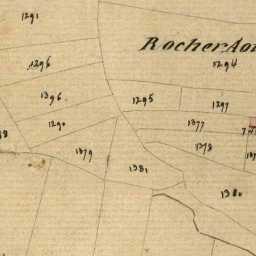 1291
Rocherfor
1294
1296
1396
1295
1297
1290
1377
1378
1379
1381
1380